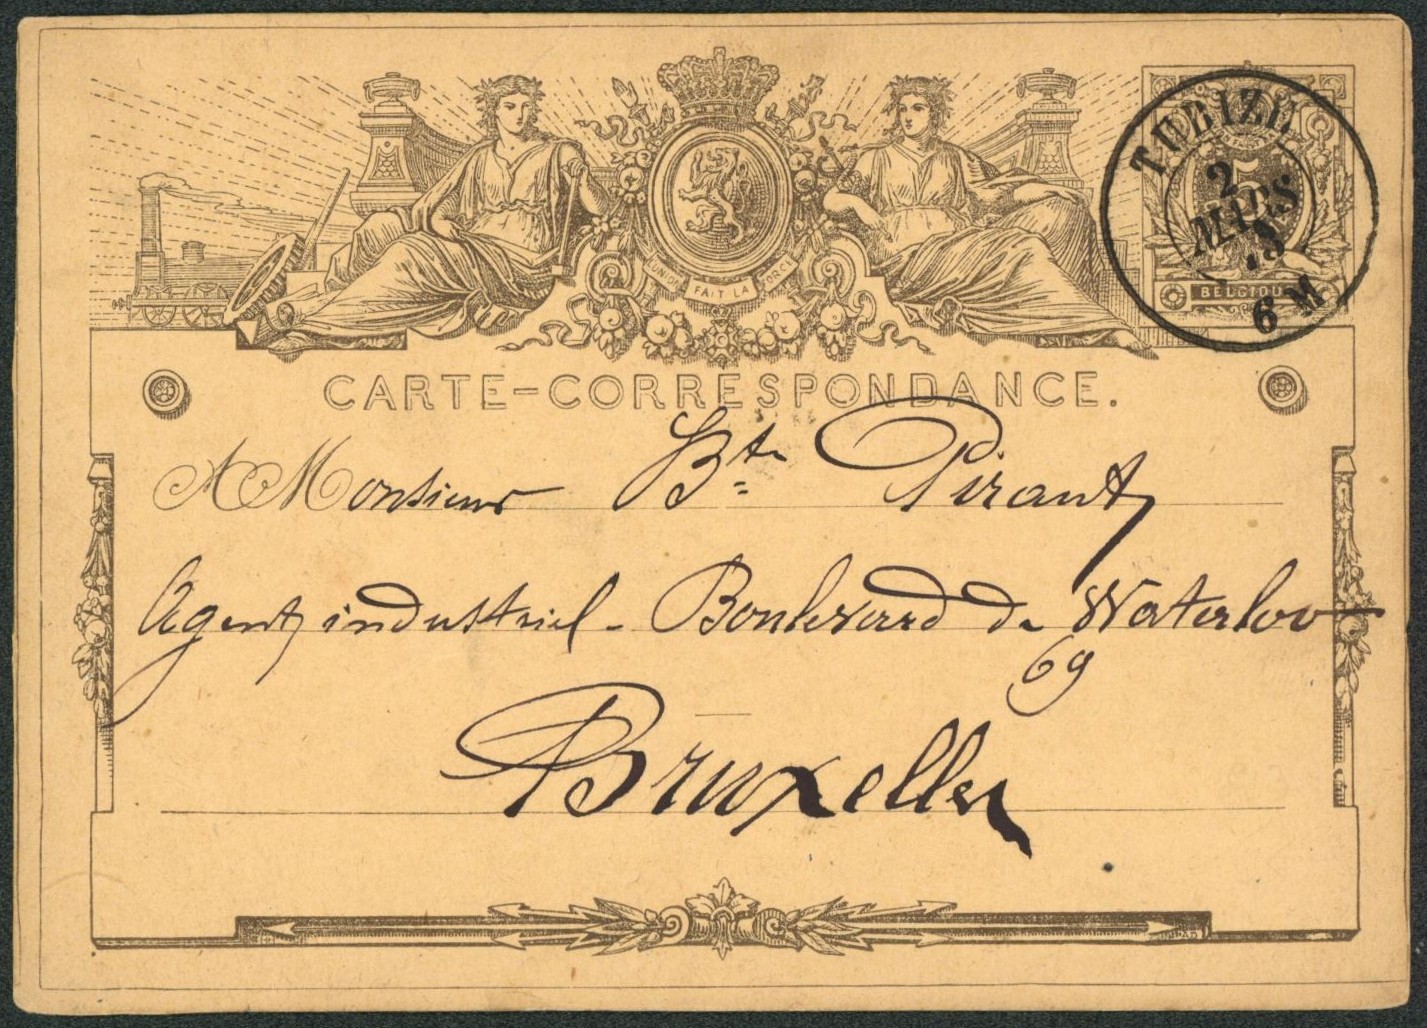 L'UNION FAIT LA FORCE
5
BELGIQUE
TUBIZE
2
MARS
6 M
CARTE-CORRESPONDANCE.
A Monsieur Bte Pirant
Agent industriel - Boulevard de Waterloo
69
Bruxelles